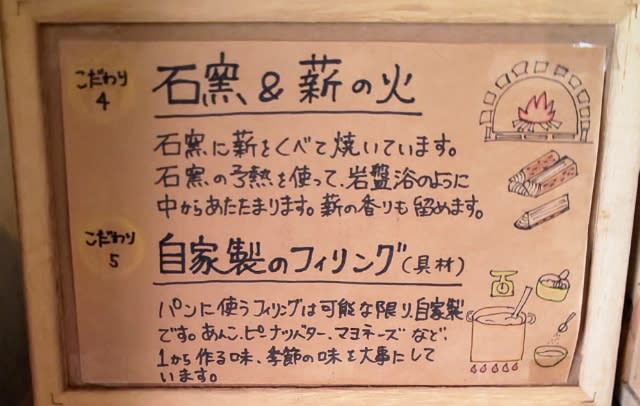 こだわり
4
石窯&薪の火
石窯に薪をくべて焼いています。
石窯の予熱を使って、岩盤浴のように
中からあたたまります。薪の香りも留めます。
こだわり
5
自家製のフィリング(具材)
パンに使うフィリングは可能な限り、自家製
です。あんこ、ピーナツバター、マヨネーズなど、
1から作る味、季節の味を大事にして
います。